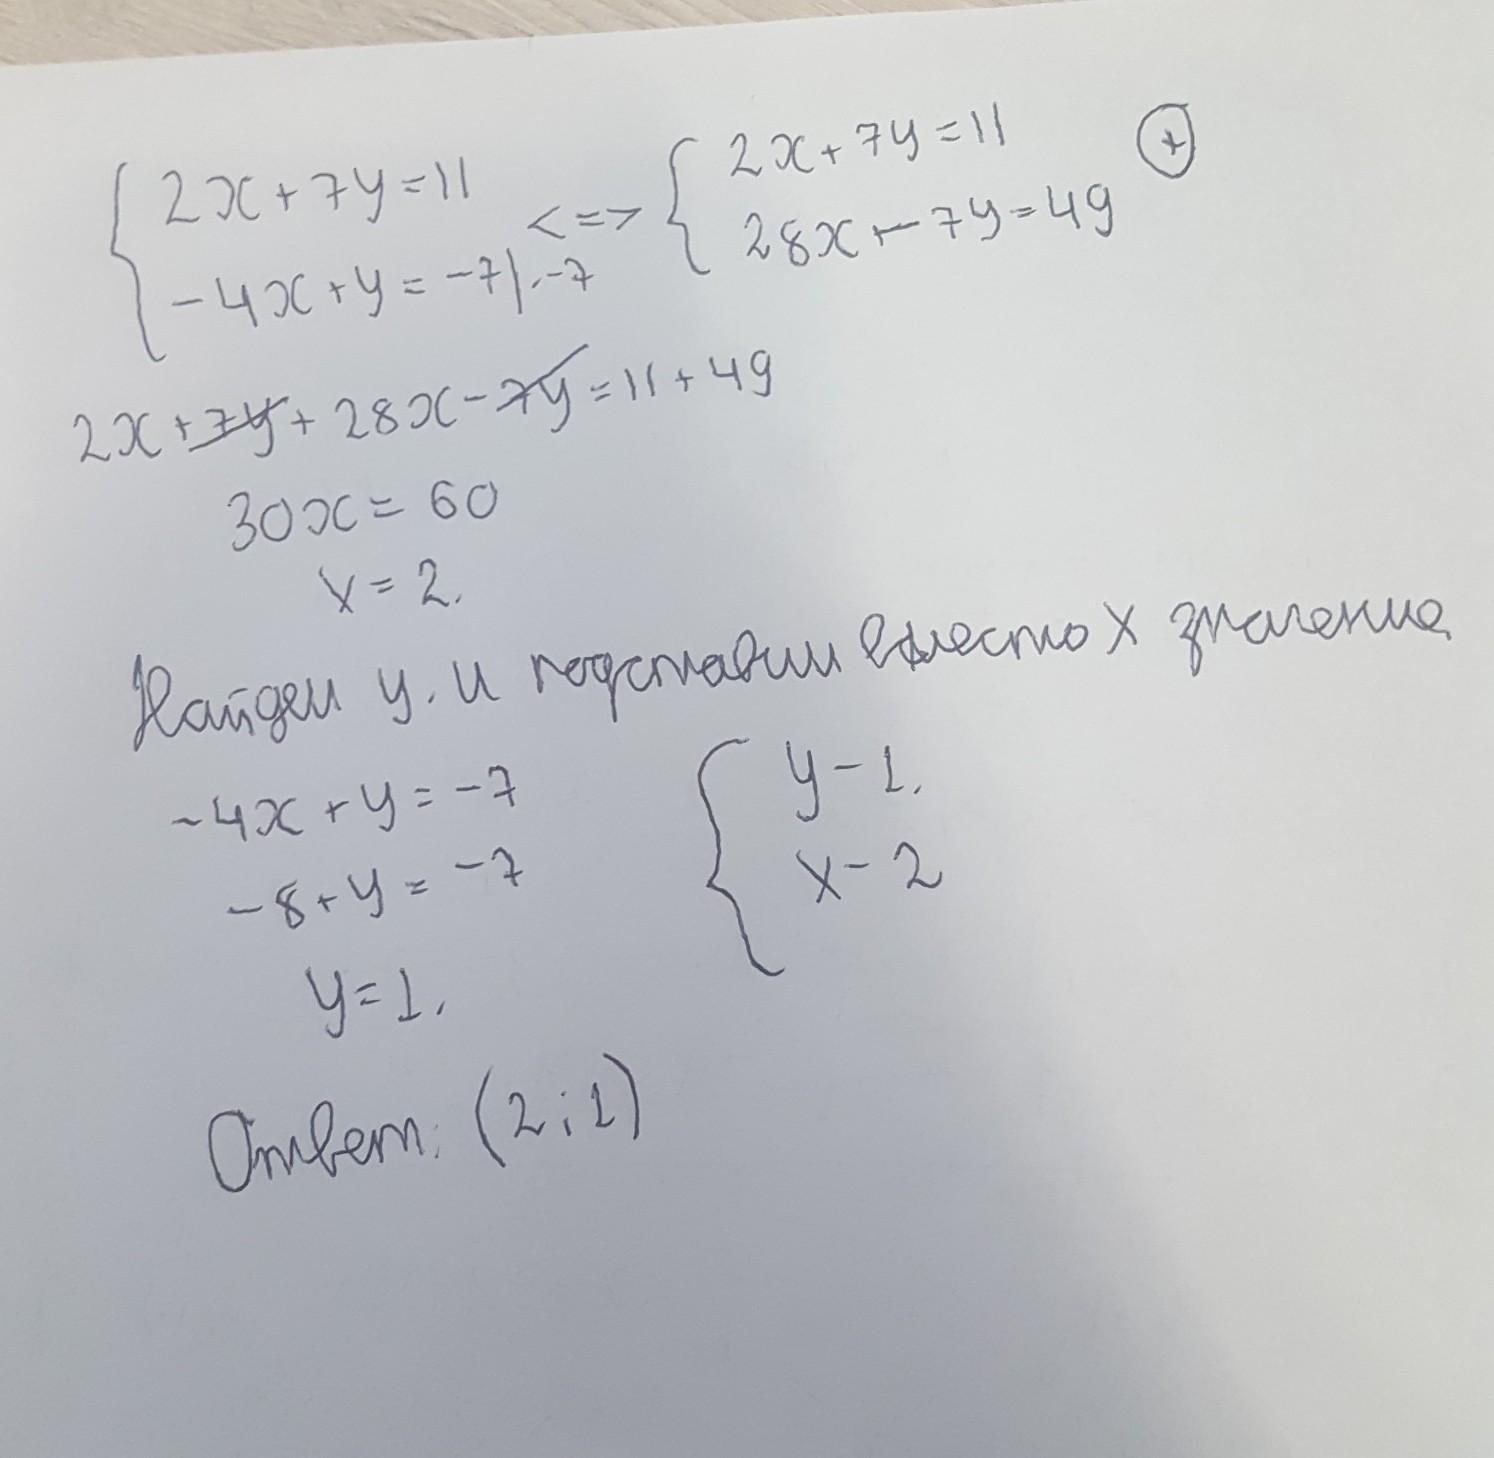 { 2x + 7y = 11 <=> { 2x + 7y = 11 (+)
-4x + y = -7 | · -7 28x - 7y = 49
2x + 7y + 28x - 7y = 11 + 49
30x = 60
x = 2.
Найдем y. и подставим вместо x значение
-4x + y = -7 { y - 1.
-8 + y = -7 x - 2
y = 1.
Ответ: (2; 1)